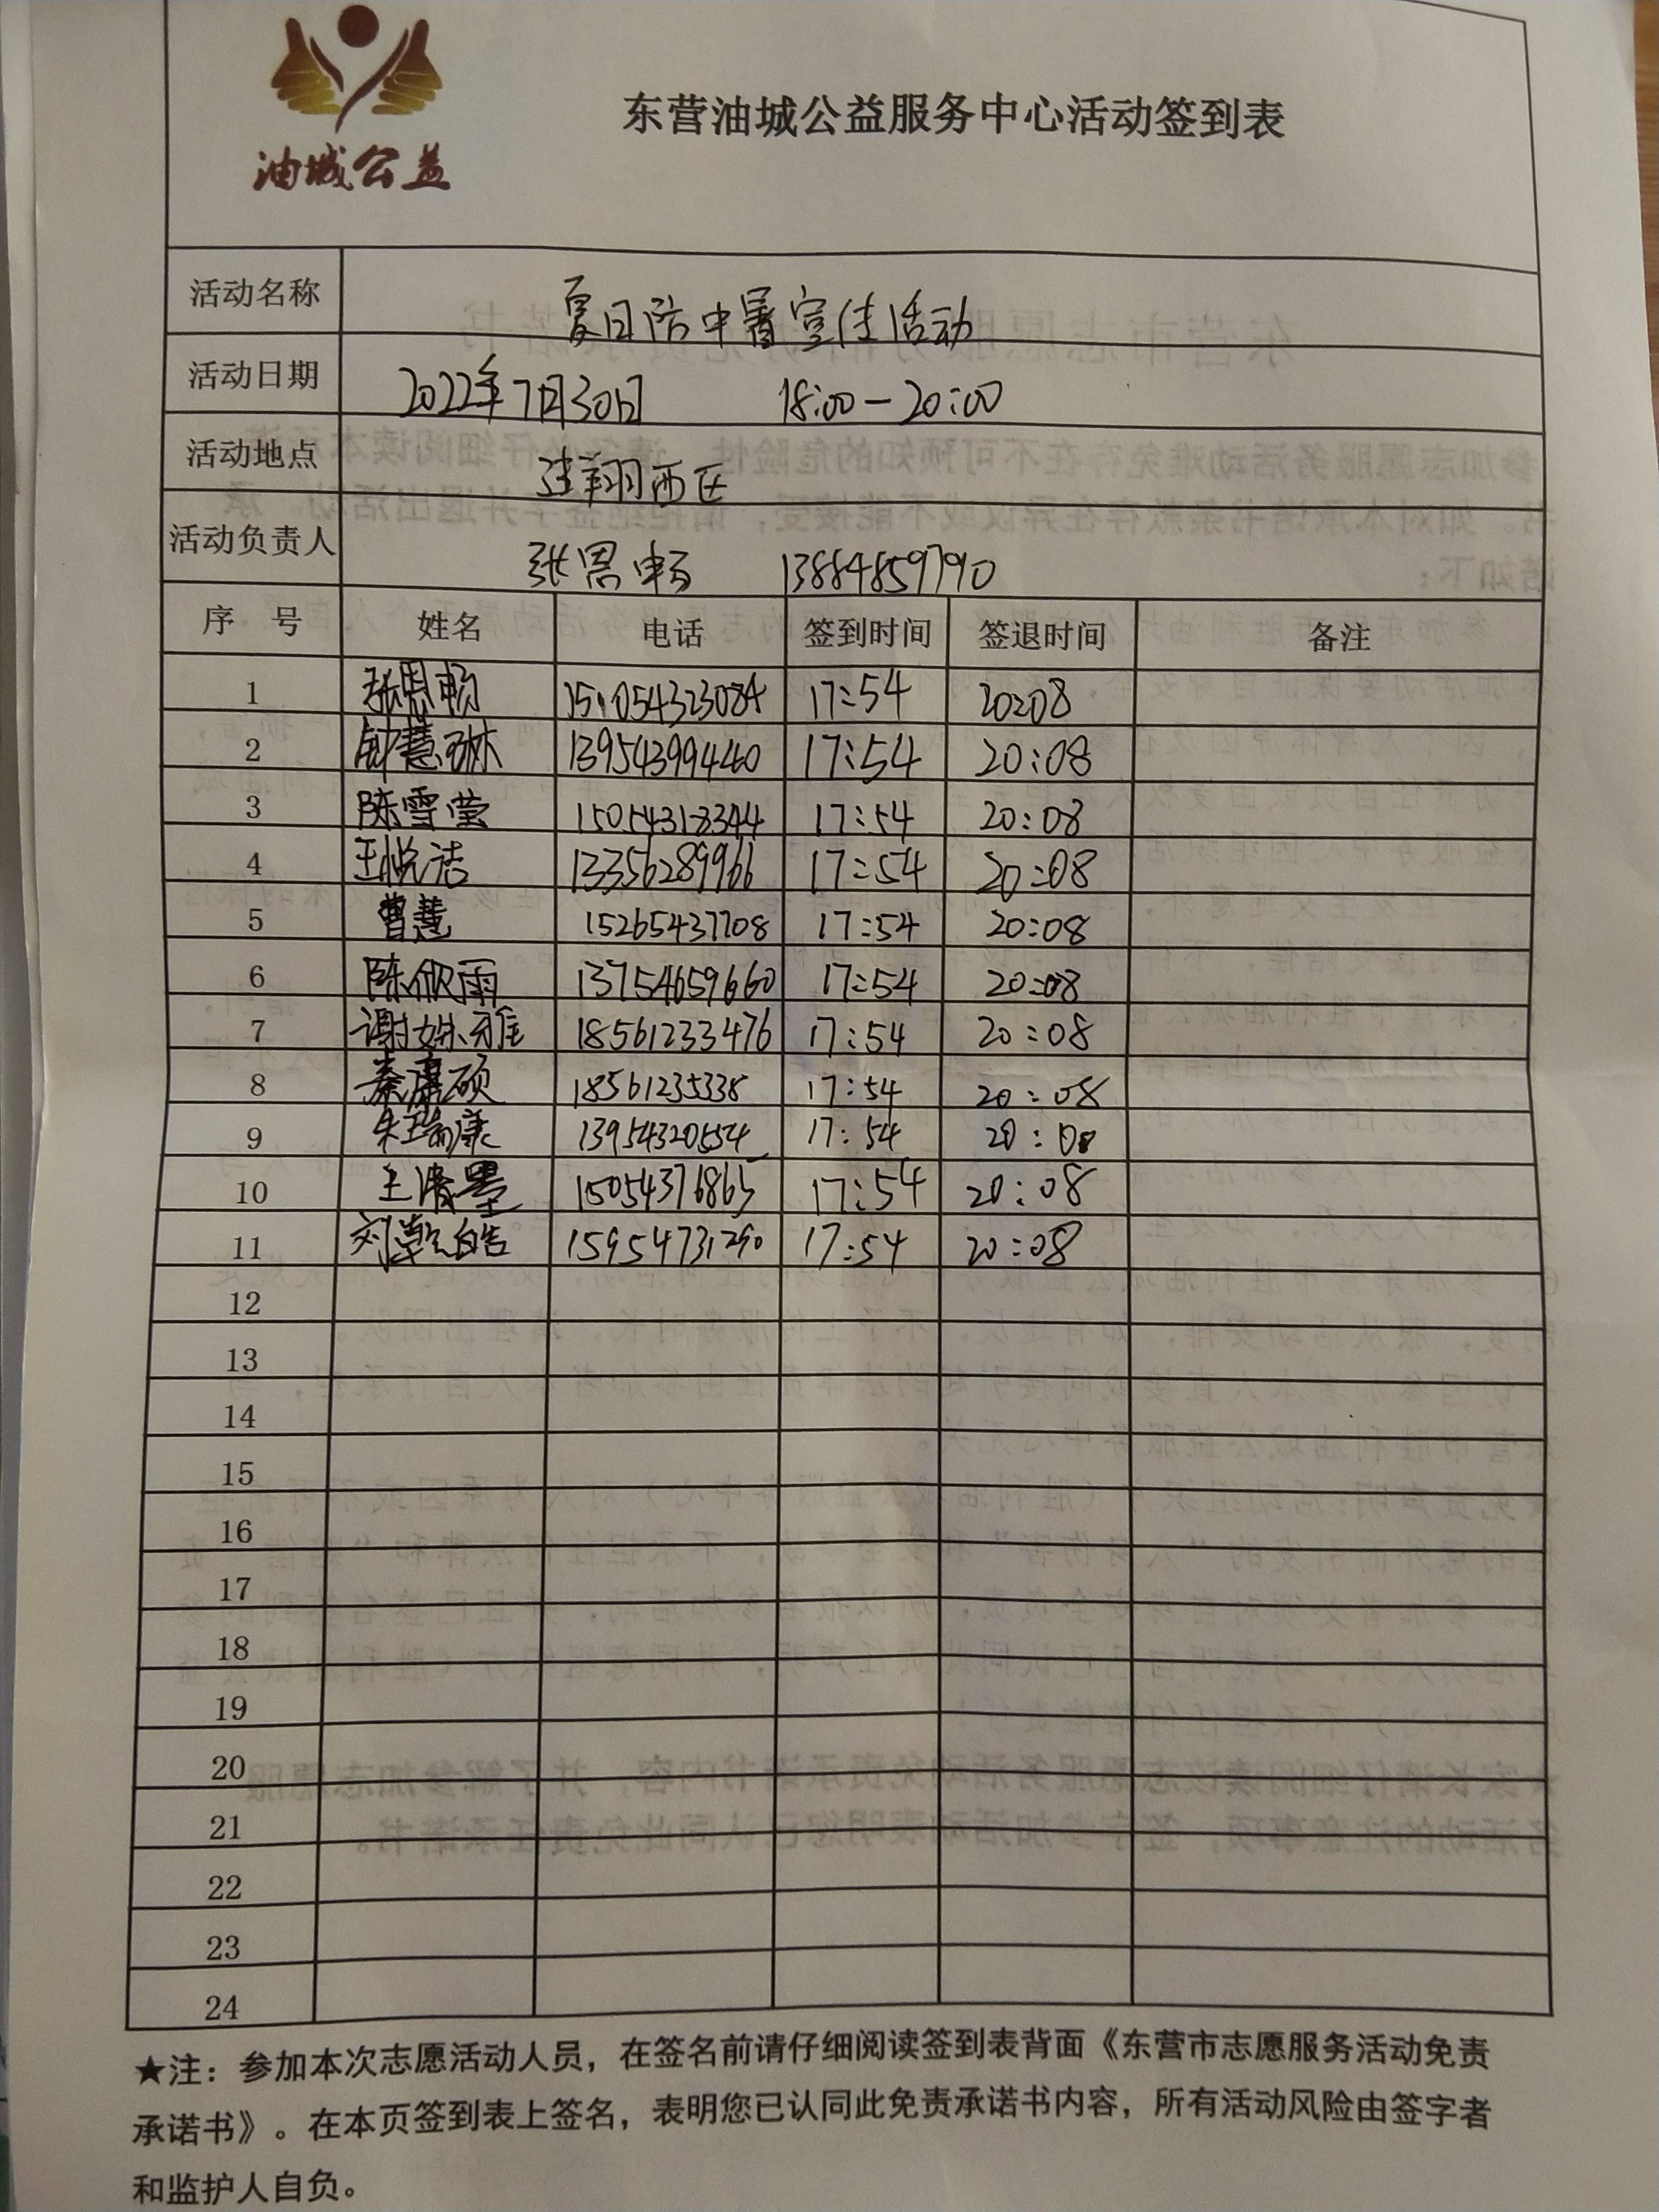 油城公益
东营油城公益服务中心活动签到表
活动名称 夏日防中暑宣传活动
活动日期 2022年7月30日 18:00-20:00
活动地点 建翔西区
活动负责人 张思畅 13884859790
序号 姓名 电话 签到时间 签退时间 备注
1 张思畅 17:54 20:08
2 钟慧琳 13954399440 17:54 20:08
3 陈雪莹 15054318344 17:54 20:08
4 王悦洁 13356289966 17:54 20:08
5 曹慧 15265437708 17:54 20:08
6 陈欣雨 13754659660 17:54 20:08
7 谢姝雅 18561233476 17:54 20:08
8 秦 硕 18561235338 17:54 20:08
9 朱瑞康 13954320554 17:54 20:08
10 王 墨 15054376865 17:54 20:08
11 刘 皓 15954731290 17:54 20:08
12
13
14
15
16
17
18
19
20
21
22
23
24
★注：参加本次志愿活动人员，在签名前请仔细阅读签到表背面《东营市志愿服务活动免责
承诺书》。在本页签到表上签名，表明您已认同此免责承诺书内容，所有活动风险由签字者
和监护人自负。